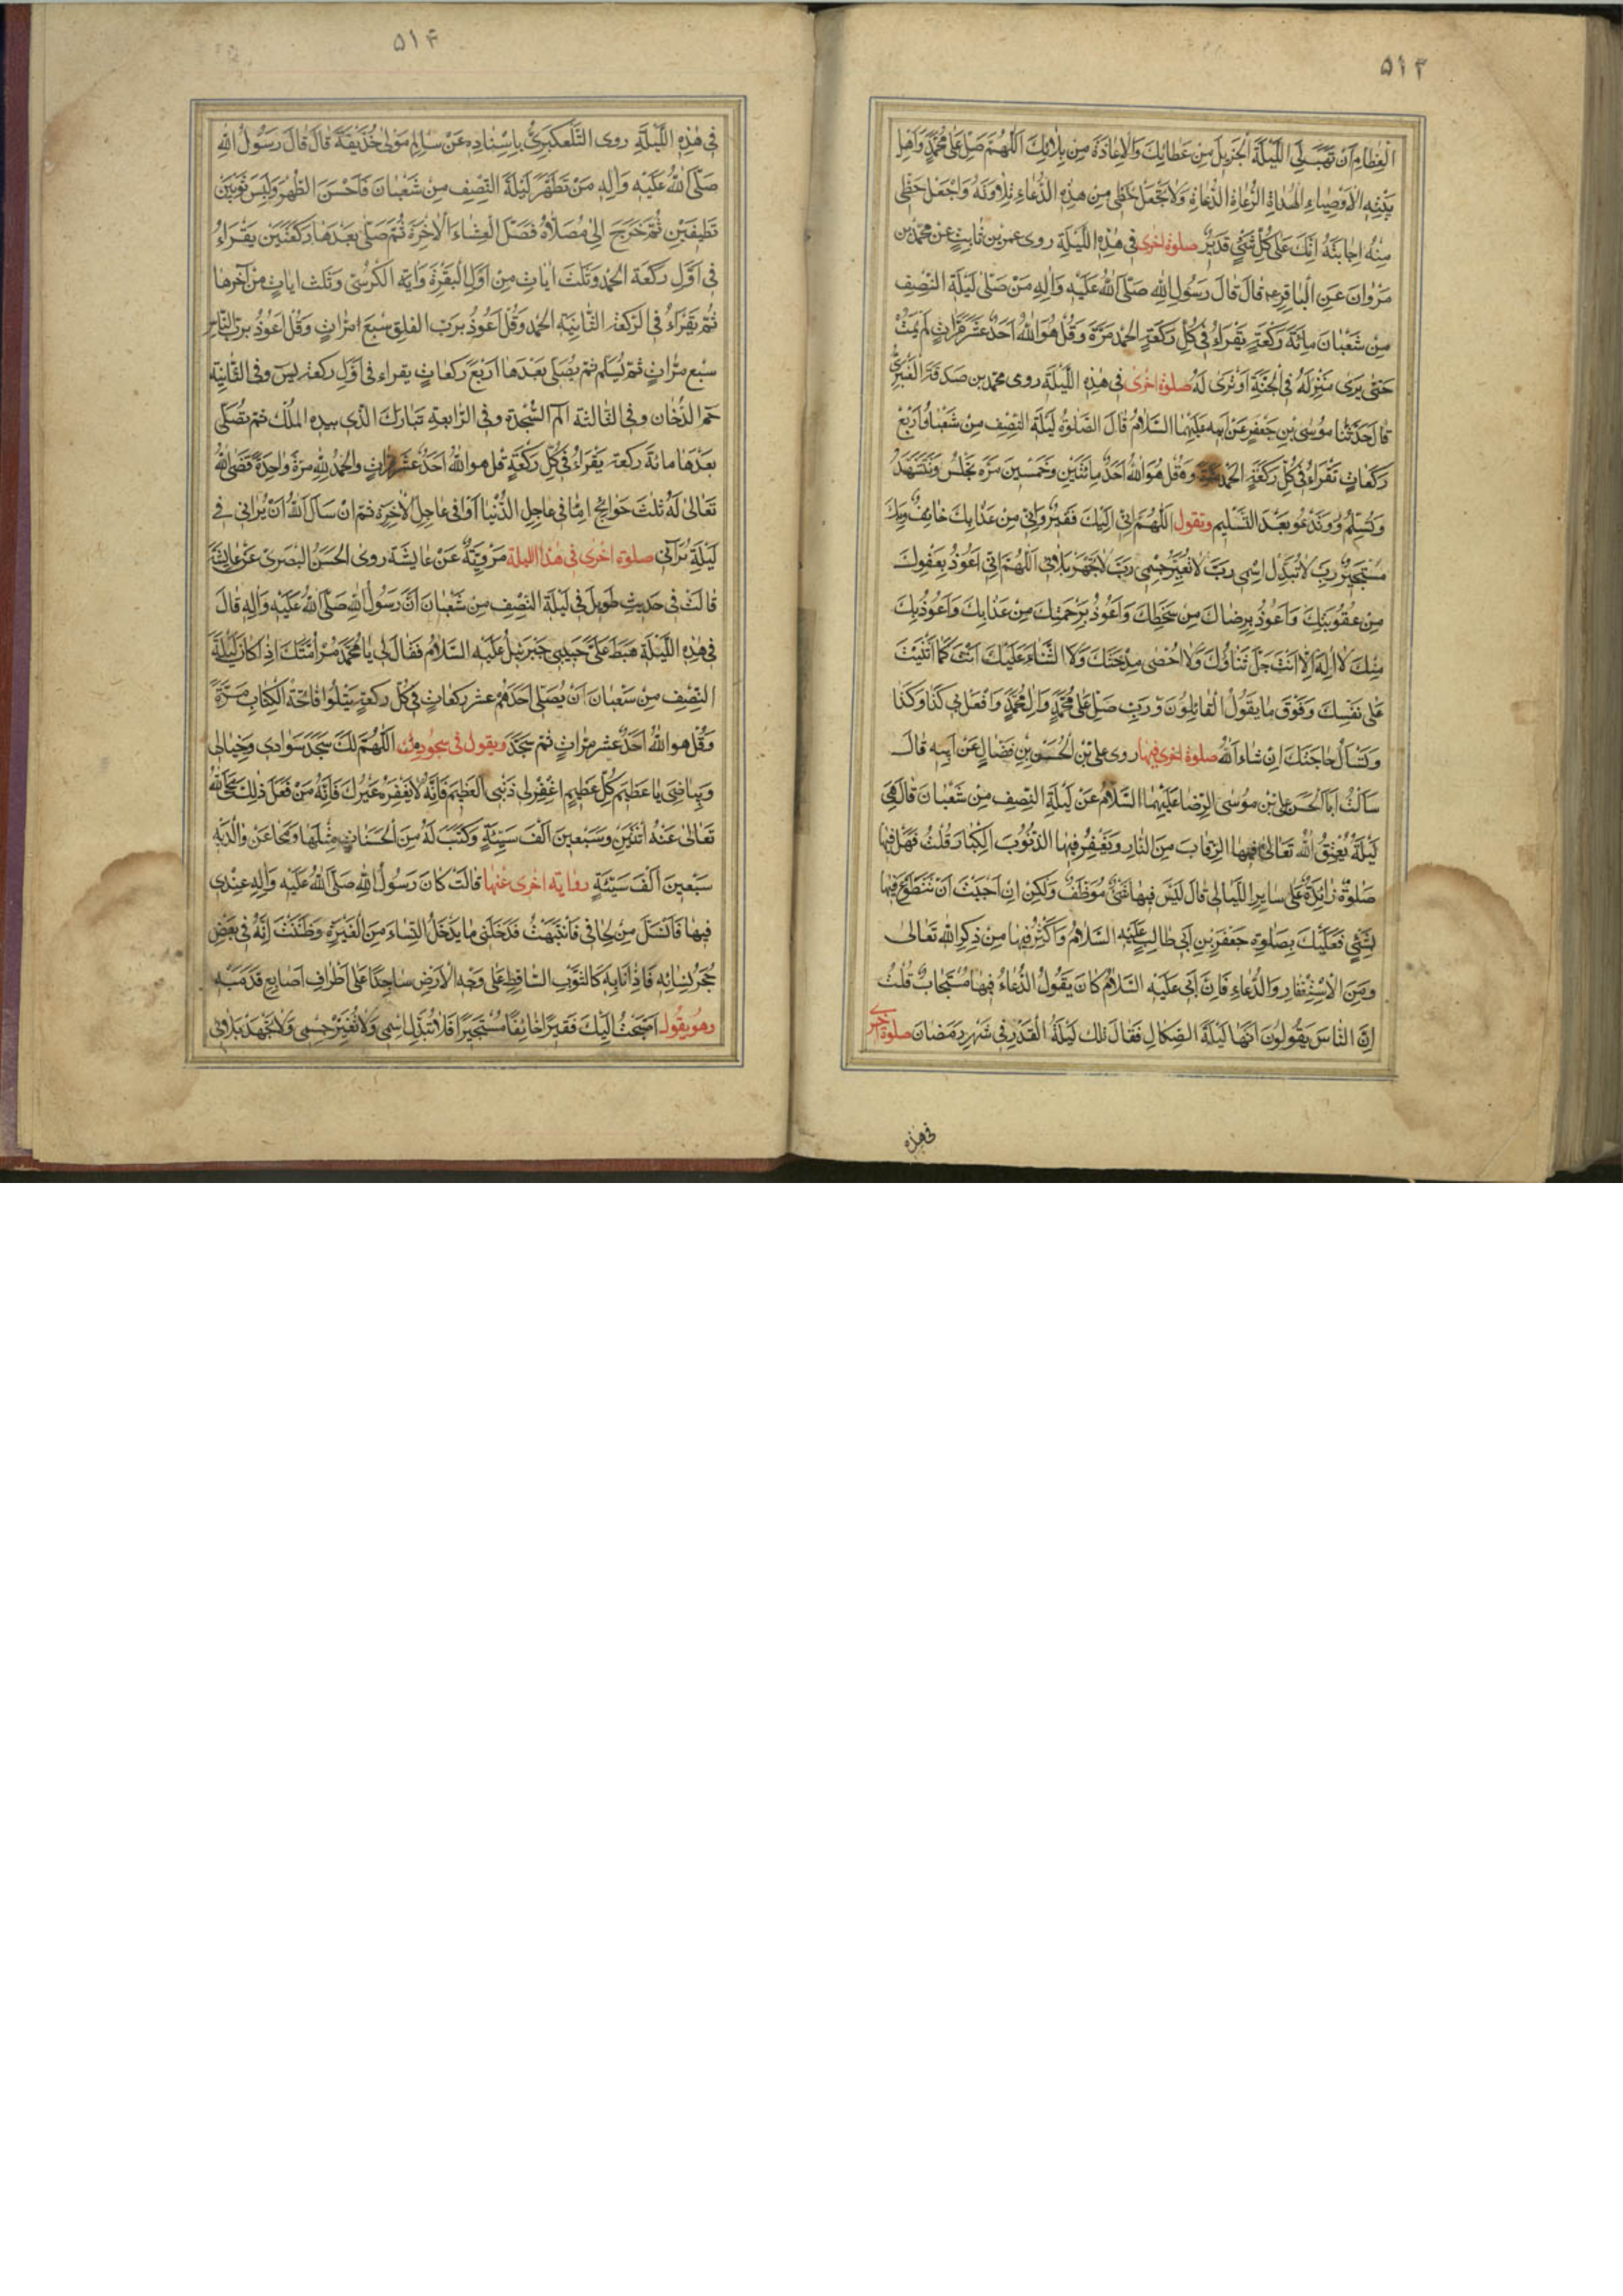 ۵۱۳
الْعِظامِ اَنْ تَهَبَ لِيَ اللَّيْلَةَ الْجَزيلَ مِنْ عَطائِكَ وَالْاِعاذَةَ مِنْ بَلائِكَ اَللّهُمَّ صَلِّ عَلى مُحَمَّدٍ وَاَهْلِ
بَيْتِهِ الْاَوْصِياءِ الْهُداةِ الرُّعاةِ الدُّعاةِ وَلا تَجْعَلْ حَظّى مِنْ هذِهِ الدُّعاءِ تِلاوَتَهُ وَاجْعَلْ حَظّى
مِنْهُ اِجابَتَهُ اِنَّكَ عَلى كُلِّ شَيْءٍ قَديرٌ صلوة اخرى فى هذِهِ اللَّيْلَةِ روى عمر بن ثابت عن محمد بن
مَرْوانَ عَنِ الْباقِرِ ع قالَ قالَ رَسُولُ اللهِ صَلَّى اللهُ عَلَيْهِ وَالِهِ مَنْ صَلّى لَيْلَةَ النِّصْفِ
مِنْ شَعْبانَ مِائَةَ رَكْعَةٍ يَقْرَاءُ فى كُلِّ رَكْعَةٍ الْحَمْدَ مَرَّةً وَقُلْ هُوَ اللهُ اَحَدٌ عَشْرَ مَرّاتٍ لَمْ يَمُتْ
حَتّى يَرى مَنْزِلَهُ فِى الْجَنَّةِ اَوْ تُرى لَهُ صلوة اخرى فى هذِهِ اللَّيْلَة روى محمد بن صدقة الْعَنْبَرِىُّ
قالَ حَدَّثَنا مُوسَى بْنِ جَعْفَرٍ عَنْ اَبيهِ عَلَيْهِمَا السَّلامُ قالَ الصَّلوةُ لَيْلَةَ النِّصْفِ مِنْ شَعْبانَ اَرْبَعُ
رَكَعاتٍ تَقْرَاءُ فى كُلِّ رَكْعَةٍ الْحَمْدَ مَرَّةً وَقُلْ هُوَ اللهُ اَحَدٌ مِائَتَيْنِ وَخَمْسينَ مَرَّة تَجْلِسُ وَتَشَهَّدُ
وَتُسَلِّمُ وَتَدْعُو بَعْدَ التَّسْليمِ وتقول اَللّهُمَّ اِنّى اِلَيْكَ فَقيرٌ وَاِنّى مِنْ عَذابِكَ خائِفٌ وَبِكَ
مُسْتَجيرٌ رَبِّ لا تُبَدِّلِ اسْمى رَبِّ لا تُغَيِّرْ جِسْمى رَبِّ لا تَجْهَدْ بَلائى اَللّهُمَّ اِنّى اَعُوذُ بِعَفْوِكَ
مِنْ عُقُوبَتِكَ وَاَعُوذُ بِرِضاكَ مِنْ سَخَطِكَ وَاَعُوذُ بِرَحْمَتِكَ مِنْ عَذابِكَ وَاَعُوذُ بِكَ
مِنْكَ لا اِلهَ اِلّا اَنْتَ جَلَّ ثَناؤُكَ وَلا اُحْصى مِدْحَتَكَ وَلَا الثَّناءَ عَلَيْكَ اَنْتَ كَما اَثْنَيْتَ
عَلى نَفْسِكَ وَفَوْقَ ما يَقُولُ الْقائِلُونَ رَبِّ صَلِّ عَلى مُحَمَّدٍ وَالِ مُحَمَّدٍ وَافْعَلْ بى كَذا وَكَذا
وَتَسْألُ حاجَتَكَ اِنْ شاءَ اللهُ صلوة اخرى فيها روى على بْنُ الْحُسَيْنِ بْنِ فَضّالٍ عَنْ اَبيهِ قالَ
سَاَلْتُ اَبَا الْحَسَنِ عَلِىَّ بْنَ مُوسَى الرِّضا عَلَيْهِمَا السَّلامُ عَنْ لَيْلَةِ النِّصْفِ مِنْ شَعْبانَ قالَ هِىَ
لَيْلَةٌ يُعْتِقُ اللهُ تَعالى فيهَا الرِّقابَ مِنَ النّارِ وَيَغْفِرُ فيهَا الذُّنُوبَ الْكِبارَ قُلْتُ فَهَلْ فيها
صَلوةٌ زائِدَةٌ عَلى سايِرِ اللَّيالى قالَ لَيْسَ فيها شَيْءٌ مُوَظَّفٌ وَلكِنْ اِنْ اَحْبَبْتَ اَنْ تَتَطَوَّعَ فيها
بِشَيْءٍ فَعَلَيْكَ بِصَلوةِ جَعْفَرِ بْنِ اَبى طالِبٍ عَلَيْهِ السَّلامُ وَاَكْثِرْ فيها مِنْ ذِكْرِ اللهِ تَعالى
وَمِنَ الْاِسْتِغْفارِ وَالدُّعاءِ فَاِنَّ اَبى عَلَيْهِ السَّلامُ كانَ يَقُولُ الدُّعاءُ فيها مُسْتَجابٌ قُلْتُ
اِنَّ النّاسَ يَقُولُونَ اِنَّها لَيْلَةُ الصِّكاكِ فَقالَ تِلْكَ لَيْلَةُ الْقَدْرِ فى شَهْرِ رَمَضانَ صلوة اخرى
فى هذه
۵۱۴
فى هذِهِ اللَّيْلَةِ روى التَّلَّعُكْبَرِىُّ بِاِسْنادِهِ عَنْ سالِمٍ مَوْلى حُذَيْفَةَ قالَ قالَ رَسُولُ اللهِ
صَلَّى اللهُ عَلَيْهِ وَالِهِ مَنْ تَطَهَّرَ لَيْلَةَ النِّصْفِ مِنْ شَعْبانَ فَاَحْسَنَ الطُّهْرَ وَلَبِسَ ثَوْبَيْنِ
نَظيفَيْنِ ثُمَّ خَرَجَ اِلى مُصَلّاهُ فَصَلَّى الْعِشاءَ الْاخِرَةَ ثُمَّ صَلّى بَعْدَها رَكْعَتَيْنِ يَقْرَاءُ
فى اَوَّلِ رَكْعَة الْحَمْدَ وَثَلثَ اياتٍ مِنْ اَوَّلِ الْبَقَرَةِ وَايَةَ الْكُرْسِىِّ وَثَلث اياتٍ مِنْ آخِرِها
ثُمَّ يَقْرَاءُ فى الرَّكْعَةِ الثّانِيَةِ الْحَمْدَ وَقُلْ اَعُوذُ بِرَبِّ الْفَلَقِ سَبْعَ مَرّاتٍ وَقُلْ اَعُوذُ بِرَبِّ النّاسِ
سَبْعَ مَرّاتٍ ثُمَّ يُسَلِّمُ ثُمَّ يُصَلّى بَعْدَها اَرْبَعَ رَكَعاتٍ يقراء فى اَوَّلِ رَكْعَةٍ يس وَفى الثّانِيَةِ
حم الدُّخان وَفى الثّالِثَة الم السَّجْدَة وَفى الرّابِعَةِ تَبارَكَ الَّذى بِيَدِهِ الْمُلْك ثُمَّ يُصَلّى
بَعْدَها مِائَةَ رَكْعَةٍ يَقْرَاءُ فى كُلِّ رَكْعَةٍ قل هو اللهُ اَحَدٌ عَشْرَ مَرّاتٍ وَالْحَمْدُ لِلّهِ مَرَّةً واحِدَةً قَضَى اللهُ
تَعالى لَهُ ثَلثَ حَوائِجَ اِمّا فى عاجِلِ الدُّنْيا اَوْ فى عاجِلِ الْاخِرَةِ ثُمَّ اِنْ سَاَلَ اللهَ اَنْ يَرانى فى
لَيْلَةٍ يَرآنى صلوة اخرى فى هذه الليلة مَرْوِيَّةٌ عَنْ عايِشَة روى الْحَسَنُ الْبَصَرى عَنْ عايِشَةَ
قالَتْ فى حَديثٍ طَويلٍ فى لَيْلَةِ النِّصْفِ مِنْ شَعْبانَ اَنَّ رَسُولَ اللهِ صَلَّى اللهُ عَلَيْهِ وَالِهِ قالَ
فى هذِهِ اللَّيْلَةِ هَبَطَ عَلَىَّ حَبيبى جَبْرَئيلُ عَلَيْهِ السَّلامُ فَقالَ لى يا مُحَمَّدُ مُرْ اُمَّتَكَ اِذا كانَ لَيْلَةُ
النِّصْفِ مِنْ شَعْبانَ اَنْ يُصَلِّىَ اَحَدُهُمْ عشر رَكَعاتٍ فى كُلِّ رَكْعَةٍ يَتْلُوا فاتِحَةَ الْكِتابِ مَرَّةً
وَقُلْ هو اللهُ اَحَدٌ عَشْرَ مَرّاتٍ ثُمَّ سَجَدَ ويقول فى سجوده اَللّهُمَّ لَكَ سَجَدَ سَوادى وَخَيالى
وَبَياضى يا عَظيمَ كُلِّ عَظيمٍ اغْفِرْ لى ذَنْبِىَ الْعَظيمَ فَاِنَّهُ لا يَغْفِرُهُ غَيْرُكَ فَاِنَّهُ مَنْ فَعَلَ ذلِكَ مَحَى اللهُ
تَعالى عَنْهُ اثْنَيْنِ وَسَبْعينَ اَلْفَ سَيِّئَةٍ وَكَتَبَ لَهُ مِنَ الْحَسَناتِ مِثْلَها وَمَحا عَنْ والِدَيْهِ
سَبْعينَ اَلْفَ سَيِّئَةٍ رواية اخرى عنها قالَتْ كانَ رَسُولُ اللهِ صَلَّى اللهُ عَلَيْهِ وَالِهِ عِنْدى
فيها فَانْسَلَّ مِنْ لِحافى فَانْتَبَهْتُ فَدَخَلَنى ما يَدْخُلُ النِّساءَ مِنَ الْغَيْرَةِ وَظَنَنْتُ اَنَّهُ فى بَعْضِ
حُجَرِ نِسائِهِ فَاِذا اَنَا بِهِ كَالثَّوْبِ السّاقِطِ عَلى وَجْهِ الْاَرْضِ ساجِدًا عَلى اَطْرافِ اَصابِعِ قَدَمَيْهِ
وهو يقول اَصْبَحْتُ اِلَيْكَ فَقيرًا خائِفًا مُسْتَجيرًا فَلا تُبَدِّلِ اسْمى وَلا تُغَيِّرْ جِسْمى وَلا تَجْهَدْ بَلائى